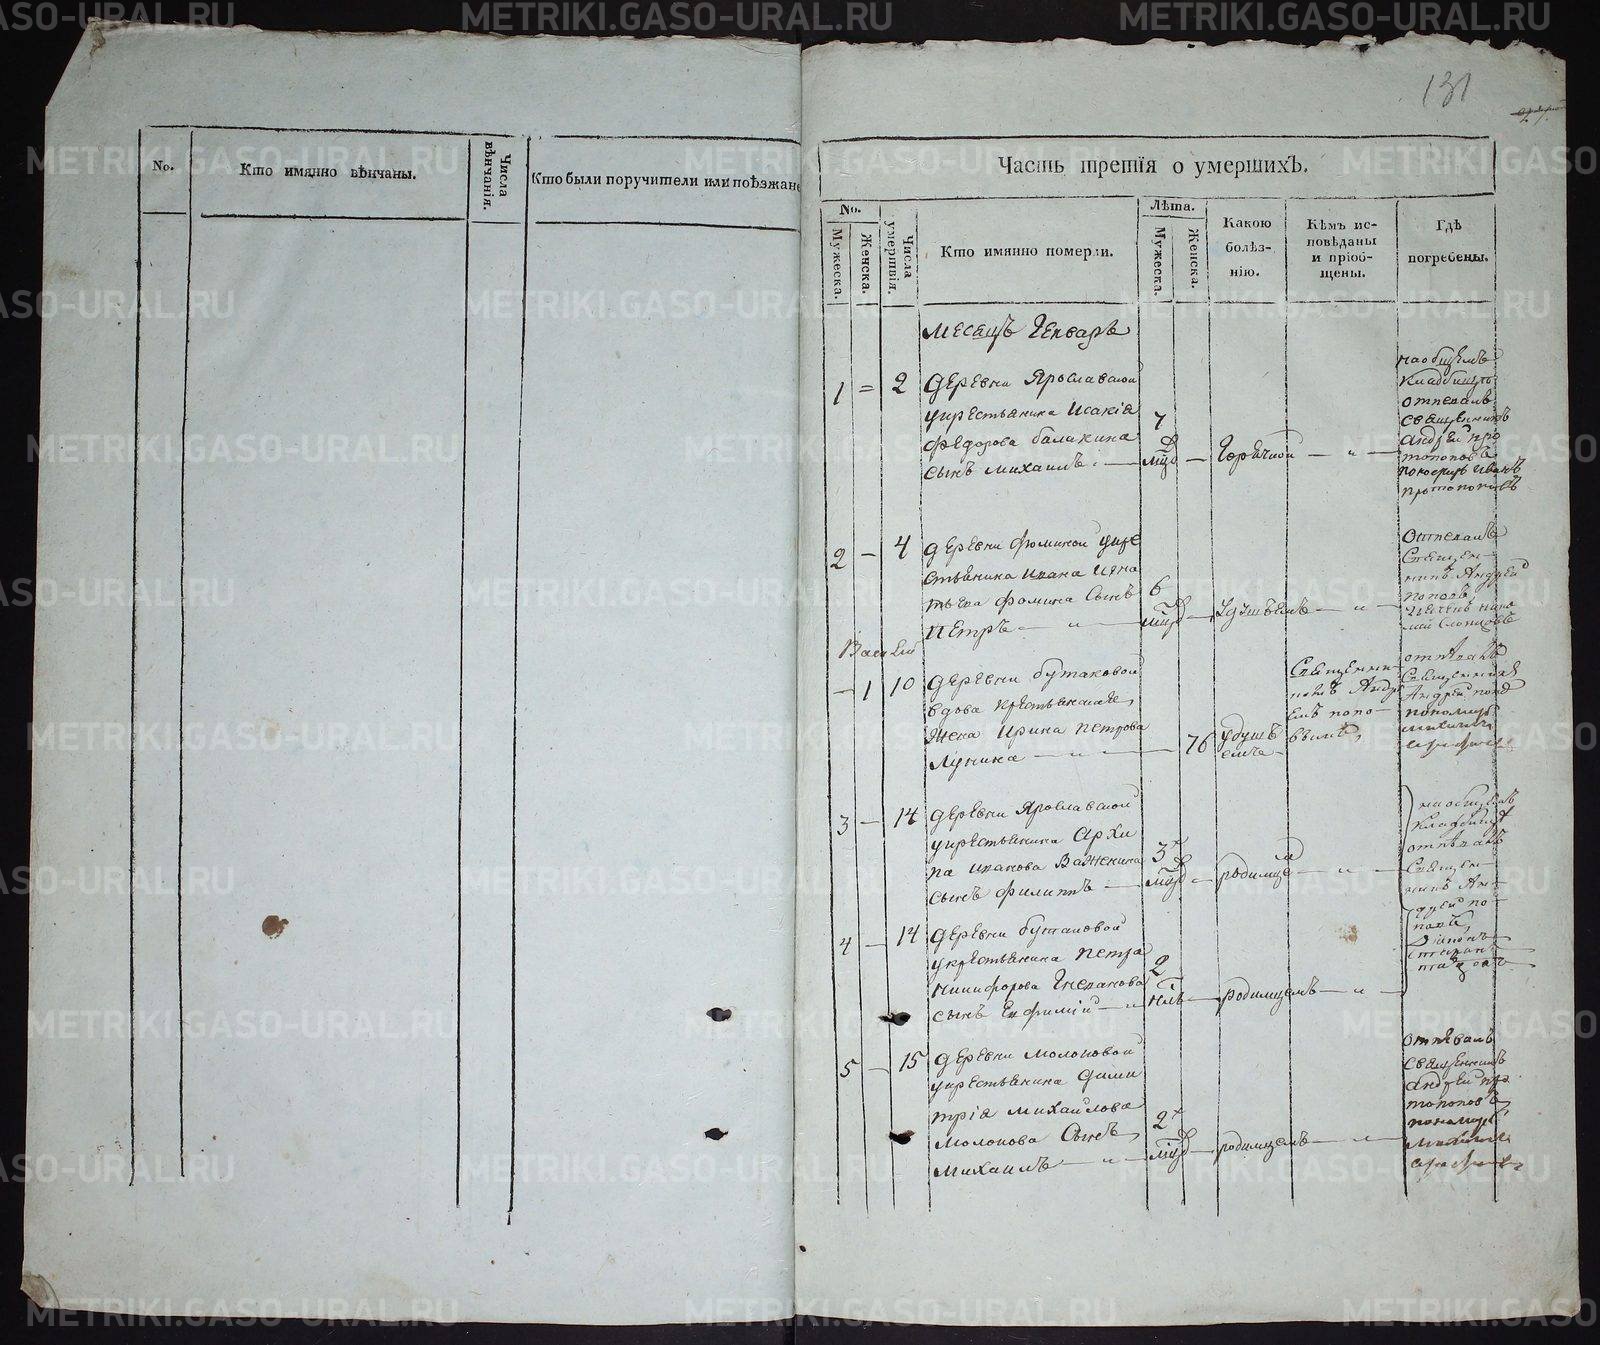 131
No.
Кто имянно вѣнчаны.
Числа вѣнчанія.
Кто были поручители или поѣзжане
Часть третія о умершихъ.
No.
Мужеска.
Женска.
Числа умершвія.
Кто имянно померли.
Лѣта.
Мужеска.
Женска.
Какою болѣз-
нію.
Кѣмъ ис-
повѣданы
и пріоб-
щены.
Гдѣ
погребены.
месецъ Генварь
1 = 2 деревни Ярославской
укрестьянина Исакія
федорова балакина
сынъ михаилъ 7 мцо Горячкой
наобщемъ
кладбищѣ
отпевалъ
священникъ
андрей про
топоповъ
Иванъ
2 — 4 деревни фоминой укре
стьянина Ивана Игна
тьева фомина Сынъ
петръ 6 мцо удушьемъ
Отпевалъ
Священ-
никъ Андрей
поповъ
Василій
— 1 10 деревни бутаковой
вдова крестьянская
жена Ирина петрова
Лунина 76 удушь
емъ
Священни-
комъ Андре
емъ попо-
вымъ
отпѣвалъ
Священникъ
Андрей попо
3 — 14 деревни Ярославской
укрестьянина Архи
па иванова Важенина
сынъ филиппъ 3х мцо родимца
наобщемъ
кладбищѣ
отпѣвалъ
Священ-
никъ Ан-
дрей по-
повъ
4 — 14 деревни бутаковой
укрестьянина петра
никифорова
сынъ Евфимій 2 нль родимцемъ
5 — 15 деревни молоковой
укрестьянина Дими
трія михайлова
молокова Сынъ
михаилъ 2х мцо родимцемъ
отпѣвалъ
священникъ
андрей про
топоповъ
пономарь
METRIKI.GASO-URAL.RU